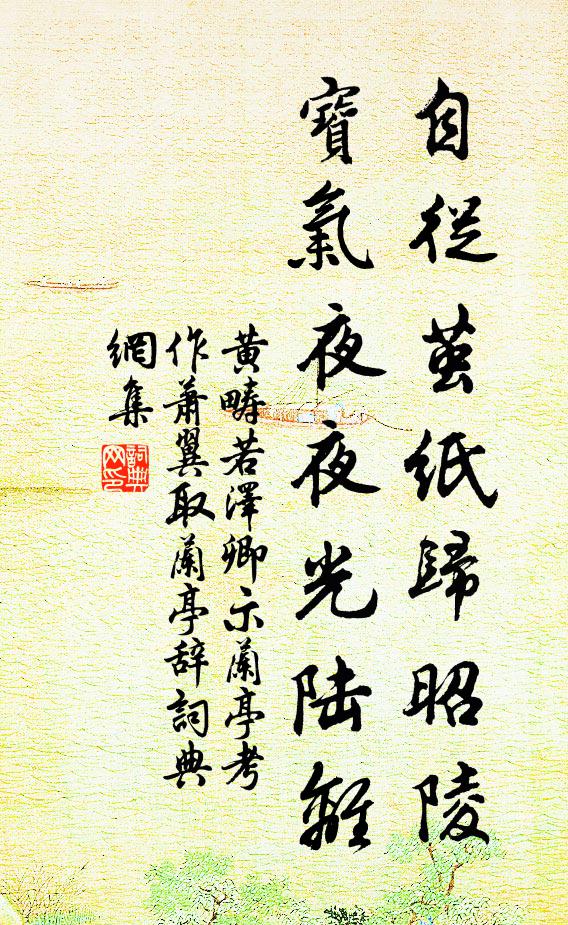 自從茧纸歸昭陵
寶氣夜夜光陆離
黄疇若澤卿示蘭亭考
作蕭翼取蘭亭辞詞典
網集
詞典
网印